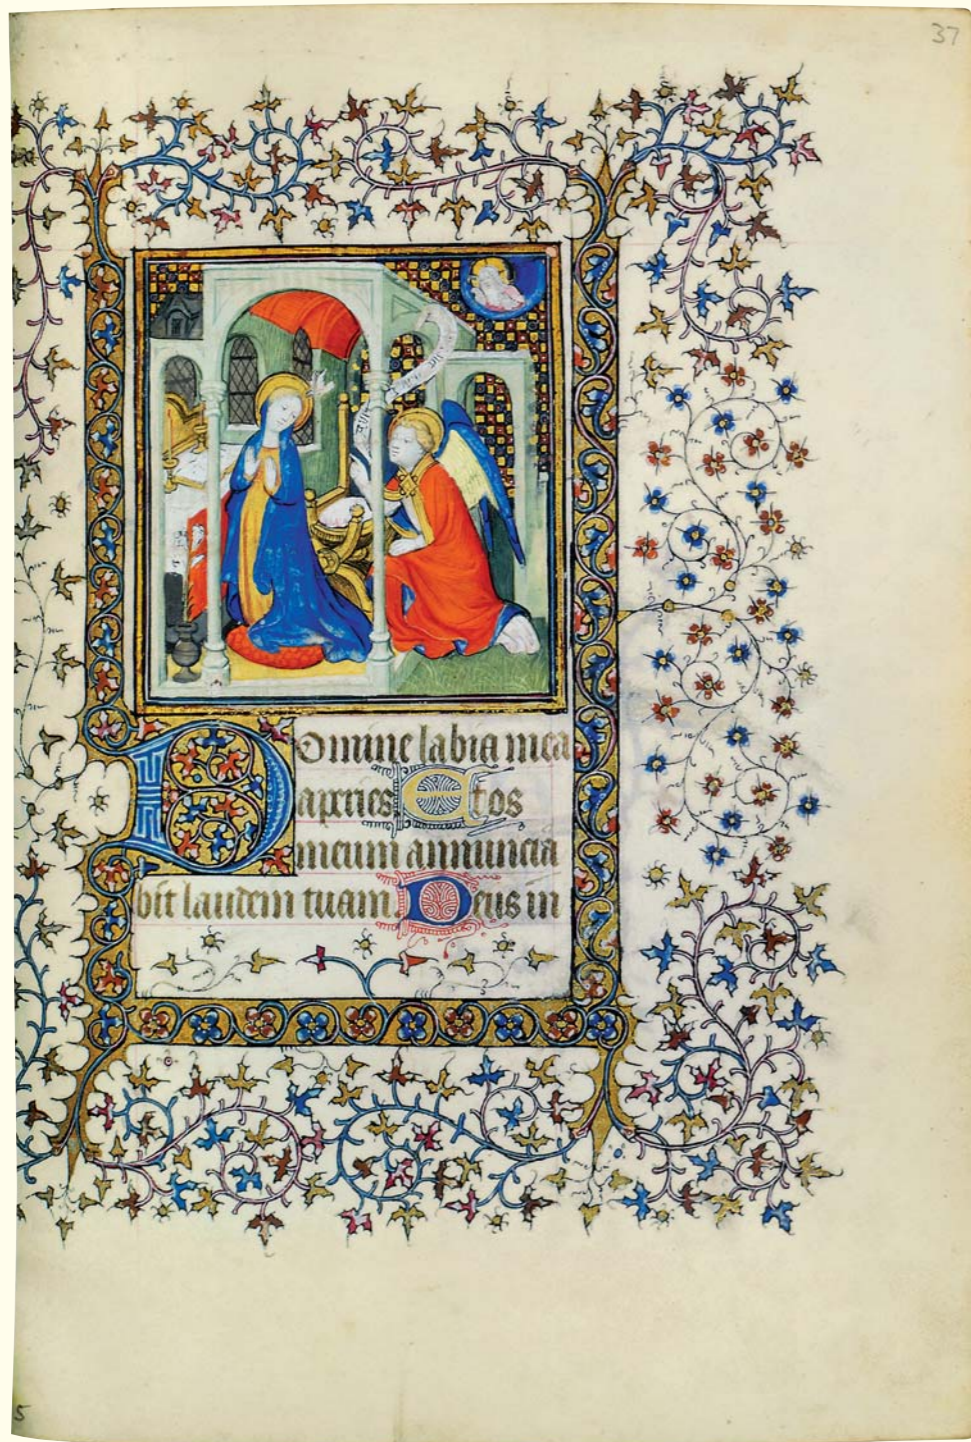 37
Domine labia mea
aperies Et os
meum annuncia
bit laudem tuam. Deus in
5